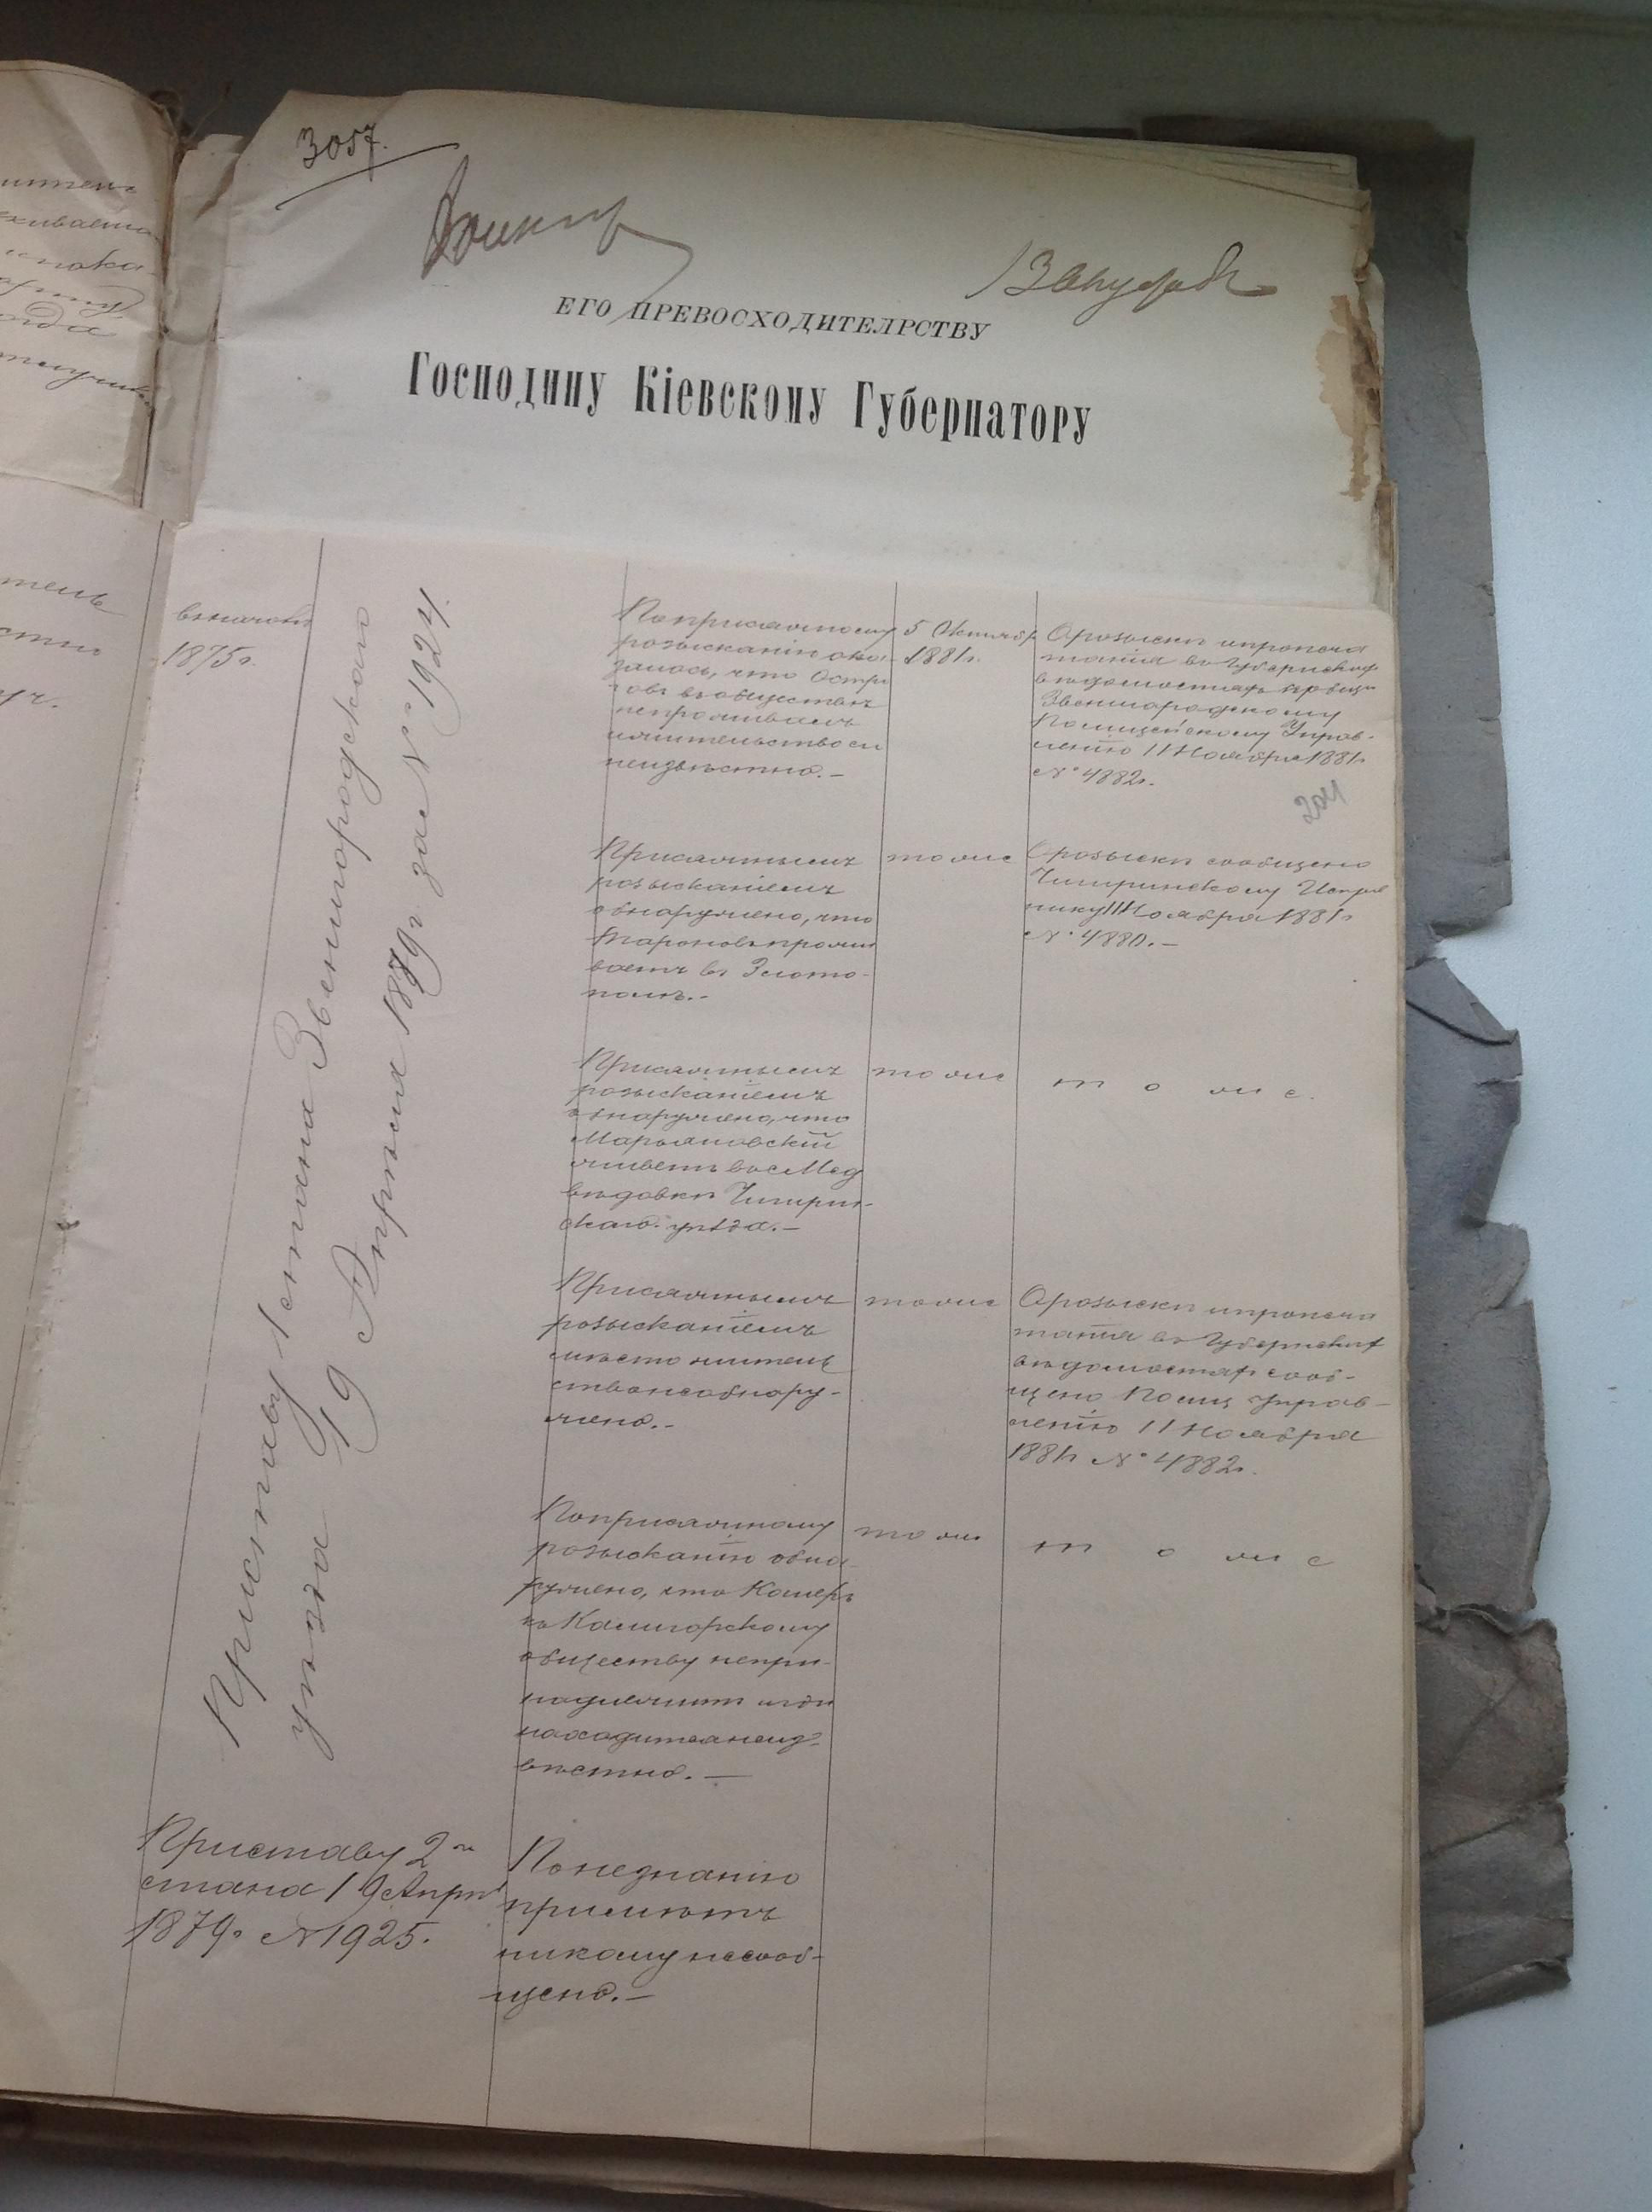 3057.
ЕГО ПРЕВОСХОДИТЕЛРСТВУ
Господину Кіевскому Губернатору
1875г.
Приставу 1 стана Звенигородскаго
уѣзда 19 Апрѣля 1879г за № 1924.
Поприсяжному
розысканію ока-
залось, что Остри
ковъ въ обществѣ
непроживаетъ
ижительство ег
неизвѣстно.-
5 Октябр
1881г.
О розыскѣ ипропеча
танія въ Губернских
вѣдомостяхъ
Звенигородскому
Полицейскому Управ-
ленію 11 Ноября 1881г
№ 4882.
201
Присяжнымъ
розысканіемъ
обнаружено, что
прожи
ваетъ въ Злото-
полѣ.-
тоже
О розыскѣ сообщено
Чигиринскому Исправ
нику 11 Ноября 1881г
№ 4880.-
Присяжнымъ
розысканіемъ
обнаружено, что
Марьяновскій
живетъ вс Мед
вѣдовкѣ Чигирин-
скаго уѣзда.-
тоже
т о ж е.
Присяжнымъ
розысканіемъ
мѣсто жител
ства необнару-
жено.-
тоже
О розыскѣ ипропеча
танія въ Губернских
вѣдомостях сооб-
щено Полиц управ-
ленію 11 Ноября
1881г № 4882.
Поприсяжному
розысканію обна-
ружено, что
къ Калигорскому
обществу непри-
надлежит игдѣ
находится неиз-
вѣстно.-
тоже
т о ж е
Приставу 2го
стана 19 Апрѣл
1879г № 1925.
Понезнанію
примѣтъ
никому несооб-
щено.-